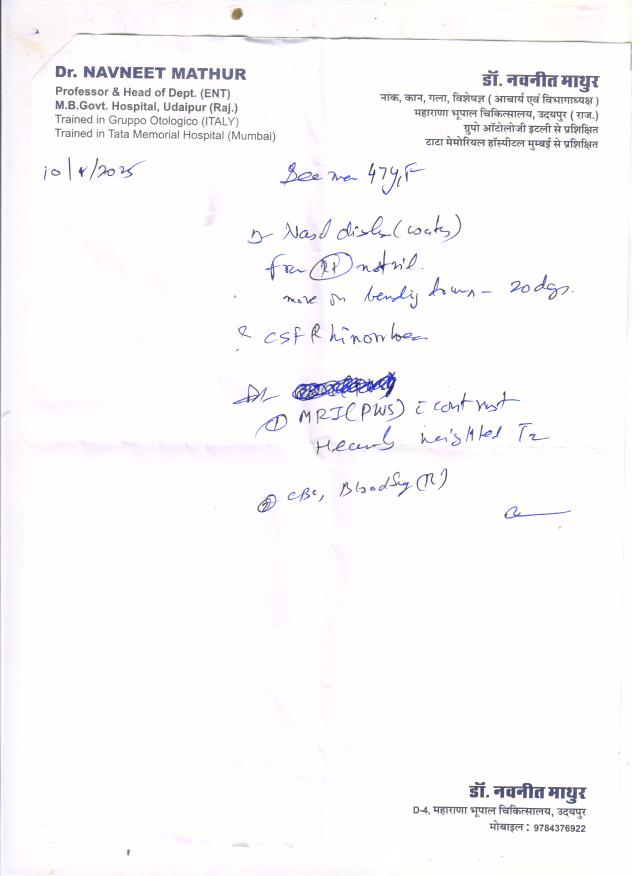 Dr. NAVNEET MATHUR
Professor & Head of Dept. (ENT)
M.B.Govt. Hospital, Udaipur (Raj.)
Trained in Gruppo Otologico (ITALY)
Trained in Tata Memorial Hospital (Mumbai)
डॉ. नवनीत माथुर
नाक, कान, गला, विशेषज्ञ ( आचार्य एवं विभागाध्यक्ष )
महाराणा भूपाल चिकित्सालय, उदयपुर ( राज.)
ग्रुपो ऑटोलोजी इटली से प्रशिक्षित
टाटा मेमोरियल हॉस्पीटल मुम्बई से प्रशिक्षित
10/4/2025
47y,F
Nasal
from Rt nostril.
more on bending down - 20 dys.
CSF Rhinorrhoea
① MRI (PNS) c contrast
Heavily weighted T2
② CBC, Blood Sug (R)
डॉ. नवनीत माथुर
D-4, महाराणा भूपाल चिकित्सालय, उदयपुर
मोबाइल : 9784376922